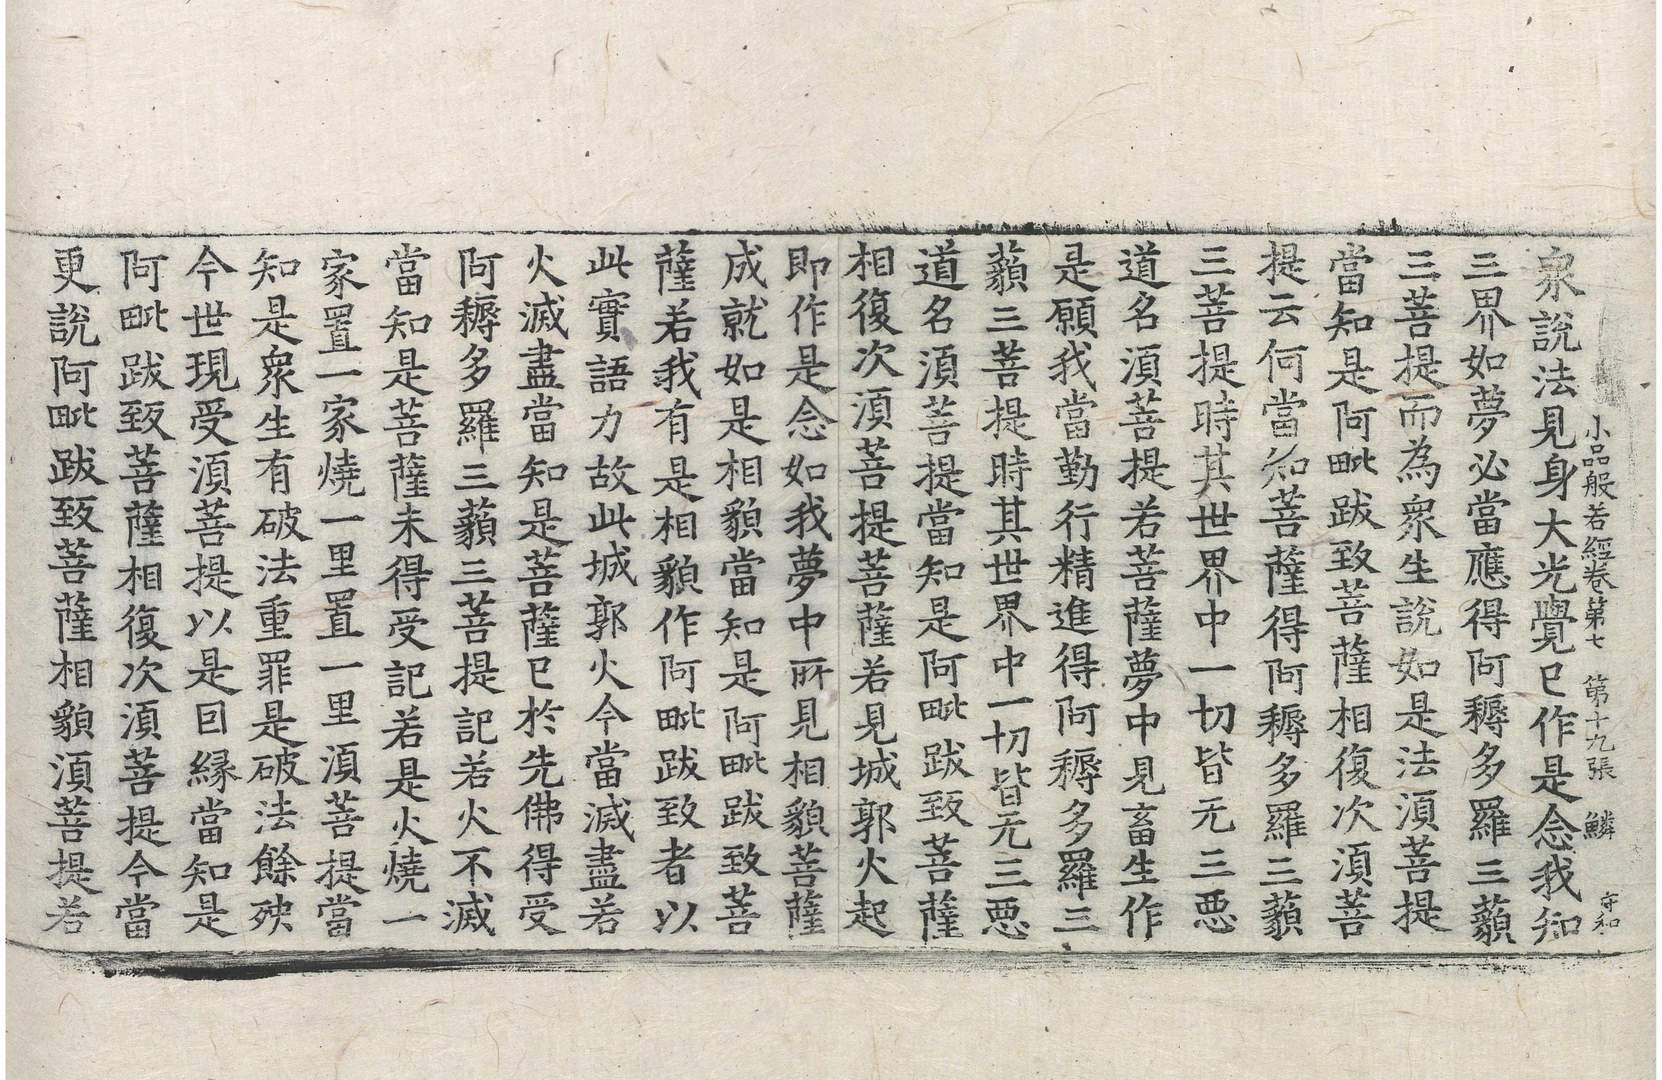 小品般若經卷第七 第十九張 鱗 守和
衆說法見身大光覺已作是念我知
三界如夢必當應得阿耨多羅三藐
三菩提而為衆生說如是法湏菩提
當知是阿毗跋致菩薩相復次湏菩
提云何當知菩薩得阿耨多羅三藐
三菩提時其世界中一切皆无三惡
道名湏菩提若菩薩夢中見畜生作
是願我當勤行精進得阿耨多羅三
藐三菩提時其世界中一切皆无三惡
道名湏菩提當知是阿毗跋致菩薩
相復次湏菩提菩薩若見城郭火起
即作是念如我夢中所見相貌菩薩
成就如是相貌當知是阿毗跋致菩
薩若我有是相貌作阿毗跋致者以
此實語力故此城郭火今當滅盡若
火滅盡當知是菩薩已於先佛得受
阿耨多羅三藐三菩提記若火不滅
當知是菩薩未得受記若是火燒一
家置一家燒一里置一里湏菩提當
知是衆生有破法重罪是破法餘殃
今世現受湏菩提以是因緣當知是
阿毗跋致菩薩相復次湏菩提今當
更說阿毗跋致菩薩相貌湏菩提若